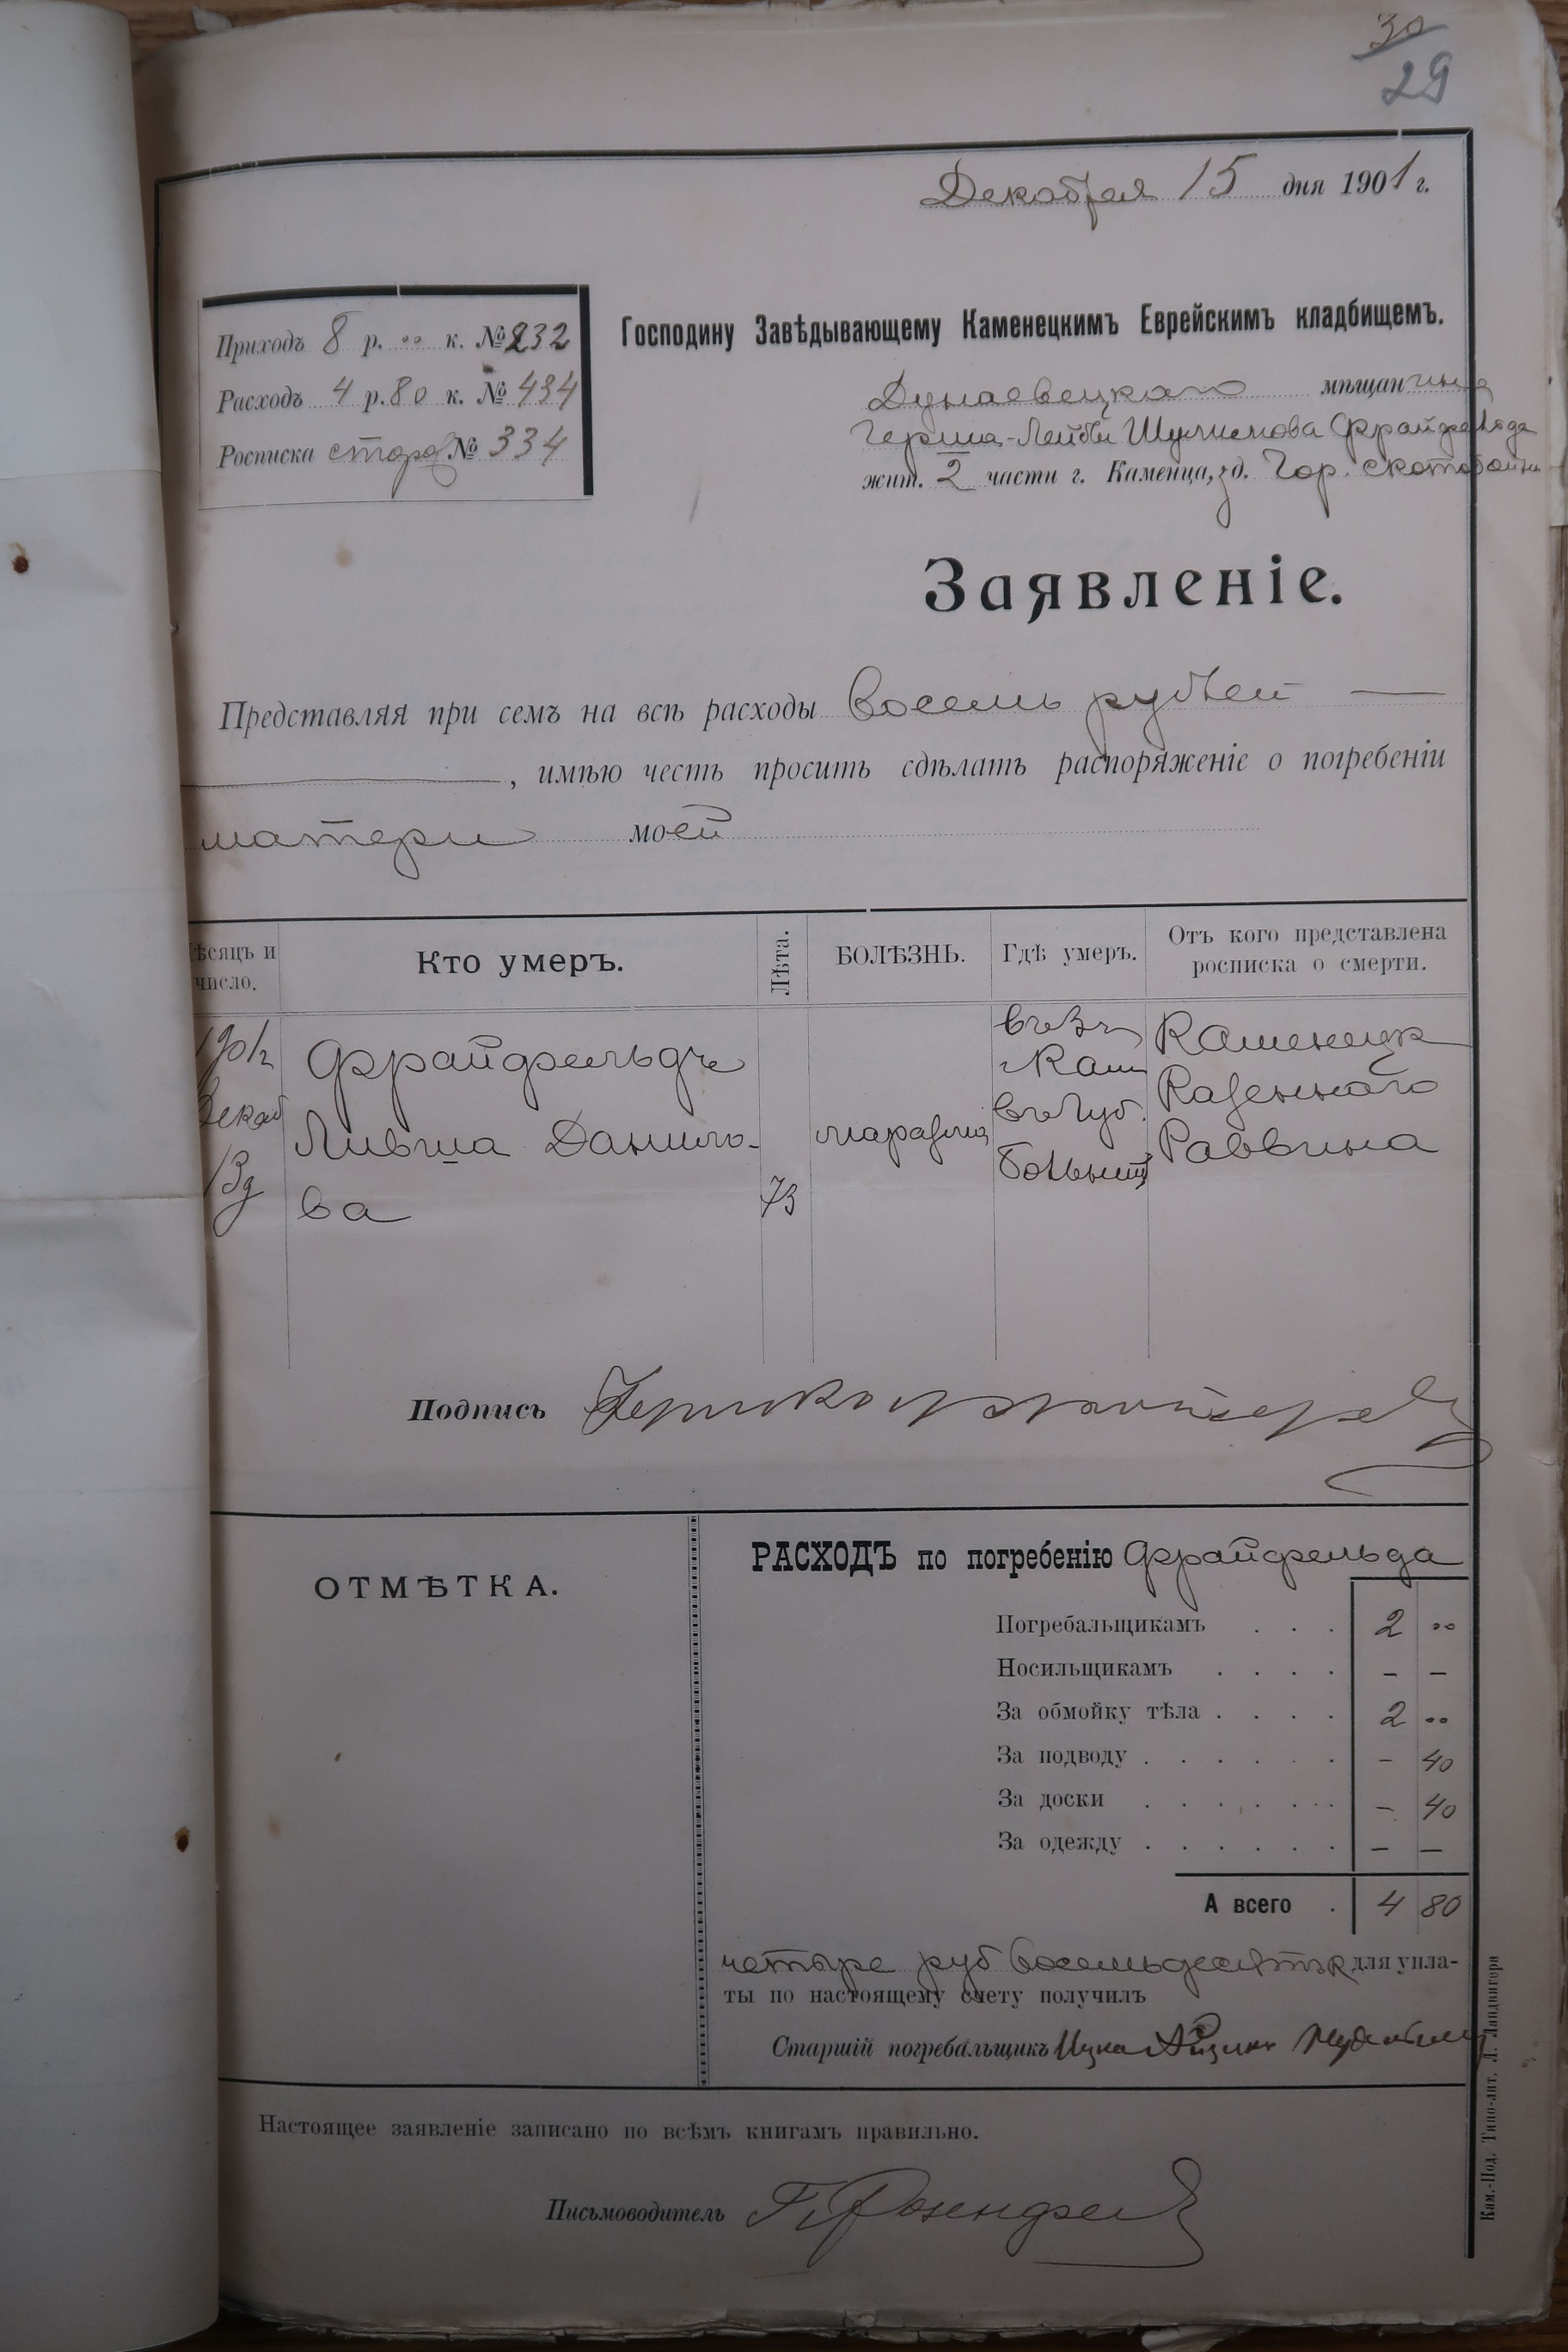 30
29
Декабря 15 дня 1901 г.
Приходъ 8 р. „ к. № 232
Расходъ 4 р. 80 к. № 434
Росписка сторо № 334
Господину Завѣдывающему Каменецкимъ Еврейскимъ кладбищемъ.
Дунаевецкаго мѣщанина
Герша-Лейби Шулимова Фрайфельда
жит. 2 части г. Каменца, д. Гор. скотобойни
Заявленіе.
Представляя при семъ на всѣ расходы восемь рублей —
, имѣю честь просить сдѣлать распоряженіе о погребеніи
матери моей
Мѣсяцъ и число.
Кто умеръ.
Лѣта.
БОЛѢЗНЬ.
Гдѣ умеръ.
Отъ кого представлена росписка о смерти.
Декаб
Фрайфельдъ
Ливша Данило-
ва
73
маразма
Кам
въ Губ.
больниц
Каменецк
Казеннаго
Раввина
Подпись
ОТМѢТКА.
РАСХОДЪ по погребенію Фрайфельда
Погребальщикамъ . . . 2 „
Носильщикамъ . . . . – –
За обмойку тѣла . . . . 2 „
За подводу . . . . . . – 40
За доски . . . . . . – 40
За одежду . . . . . . – –
А всего . 4 80
четыре руб восемьдесятъ к для упла-
ты по настоящему счету получилъ
Старшій погребальщикъ Ицка
Настоящее заявленіе записано по всѣмъ книгамъ правильно.
Письмоводитель Розенфел
Кам.-Под. Типо-лит. Л. Ландвигера